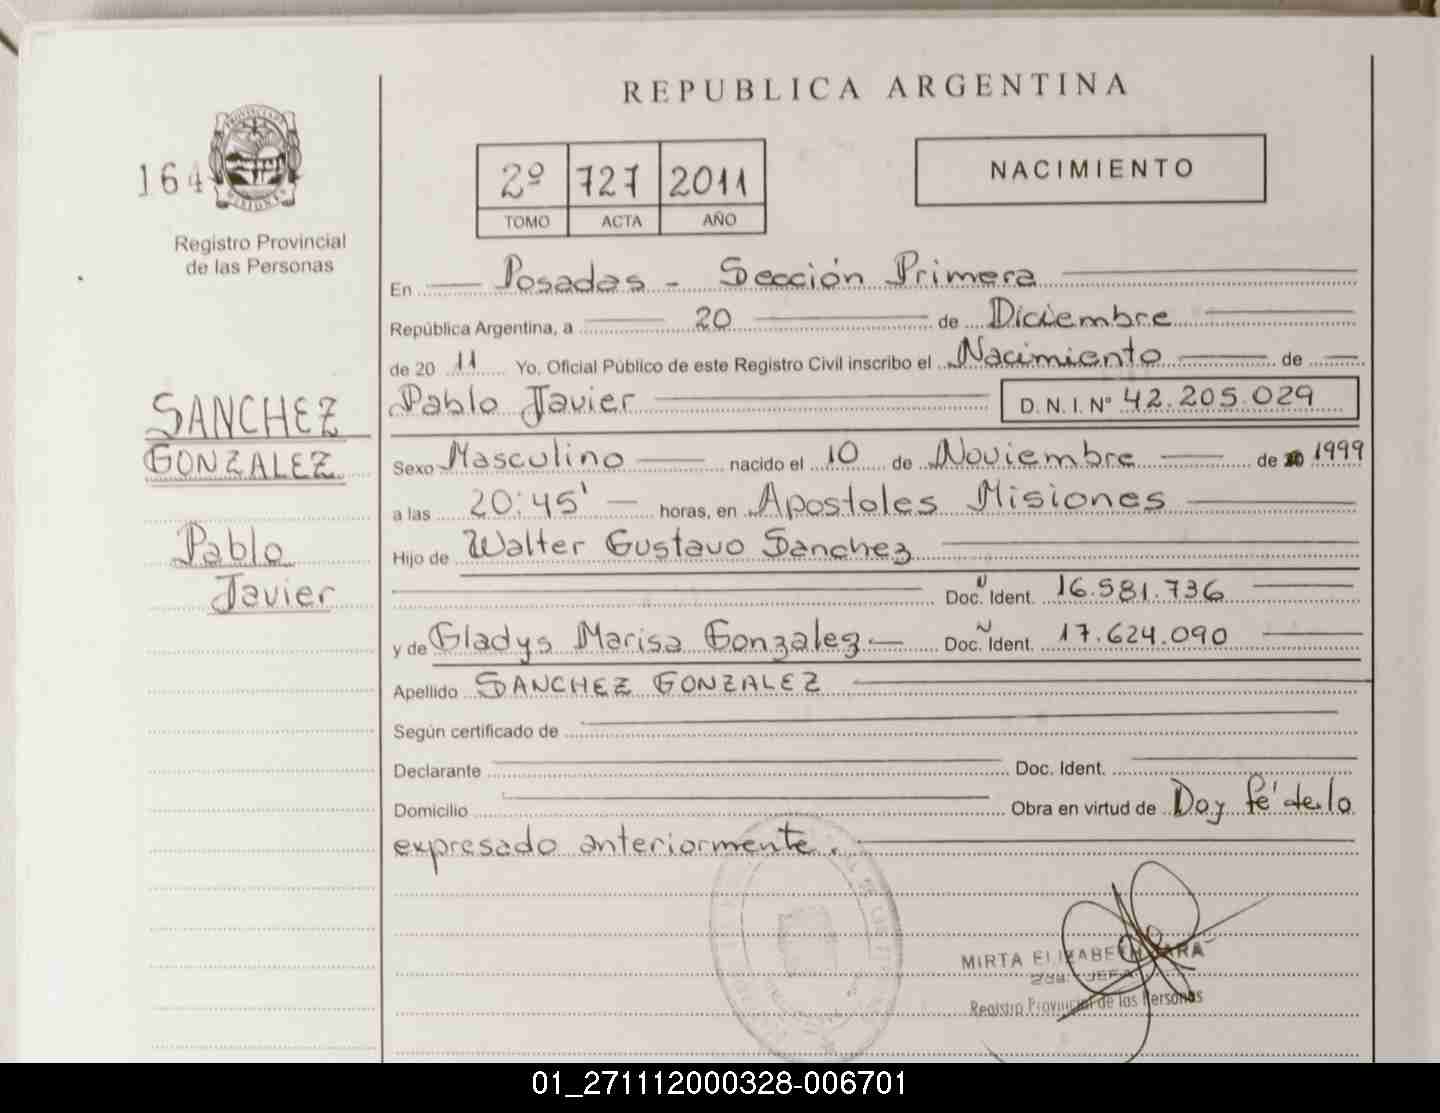 REPUBLICA ARGENTINA
164
Registro Provincial
de las Personas
2º 727 2011
TOMO ACTA AÑO
NACIMIENTO
En Posadas - Sección Primera
República Argentina, a 20 de Diciembre
de 20 11 Yo. Oficial Público de este Registro Civil inscribo el Nacimiento de
Pablo Javier D.N.I. Nº 42.205.029
SANCHEZ
GONZALEZ
Pablo
Javier
Sexo Masculino nacido el 10 de Noviembre de 1999
a las 20:45' horas, en Apostoles Misiones
Hijo de Walter Gustavo Sanchez
Doc. Ident. 16.581.736
y de Gladys Marisa Gonzalez Doc. Ident. 17.624.090
Apellido SANCHEZ GONZALEZ
Según certificado de
Declarante Doc. Ident.
Domicilio Obra en virtud de Doy fé de lo
expresado anteriormente.
MIRTA ELIZABETH
JEFA
Registro Provincial de las Personas
01_271112000328-006701